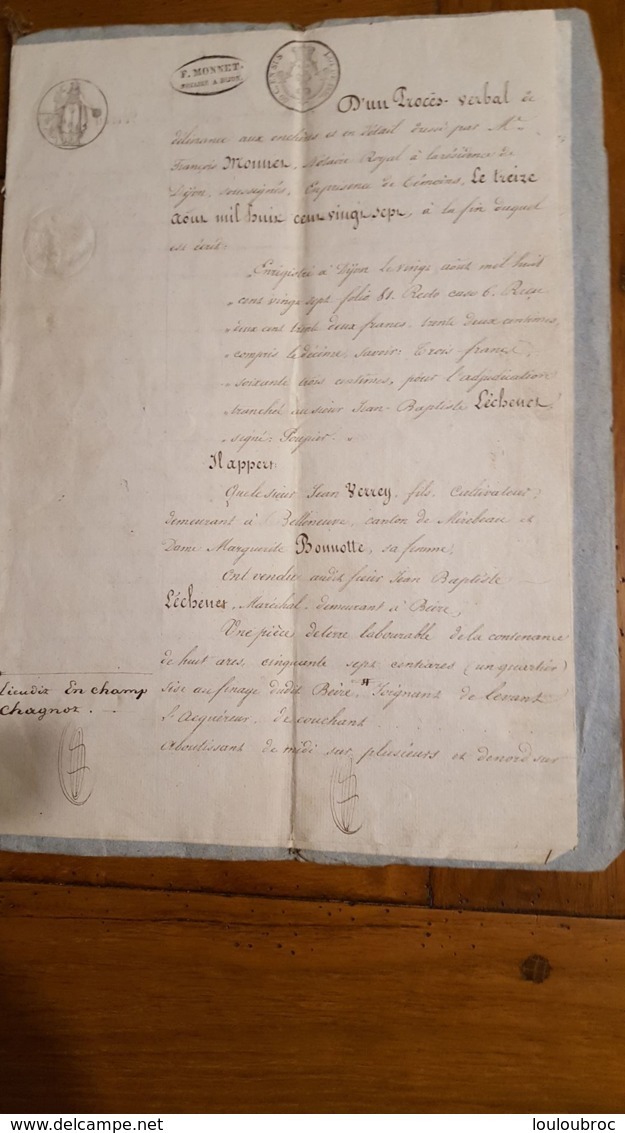 F. MONNET.
NOTAIRE A DIJON
D'un Procès-verbal de
délivrance aux enchères et en détail dressé par Me
François Monnet, Notaire Royal à la résidence de
Dijon, soussignés, En présence de témoins, Le treize
Aout mil huit cent vingt sept, à la fin duquel
est écrit:
„ Enregistré à Dijon le vingt aout mil huit
„ cent vingt sept folio 81. Recto case 6. Reçu
„ deux cent trente deux francs trente deux centimes,
„ compris le décime, savoir: trois francs
„ soixante trois centimes, pour l'adjudication
„ tranchée au sieur Jean-Baptiste Léchenet,
„ signé: Poupier. „
Il appert
Que le sieur Jean Verrey, fils, Cultivateur,
demeurant à Belleneuve, canton de Mirebeau et
Dame Marguerite Bonnotte, sa femme,
Ont vendu audit sieur Jean Baptiste
Léchenet, Maréchal, demeurant à Beire,
Une pièce de terre labourable de la contenance
de huit ares, cinquante sept centiares (un quartier)
lieudit En champ
Chagnot.
Sise au finage dudit Beire, # Joignant de levant
l'Acquéreur, de couchant
Aboutissant de midi sur plusieurs et de nord sur
louloubroc